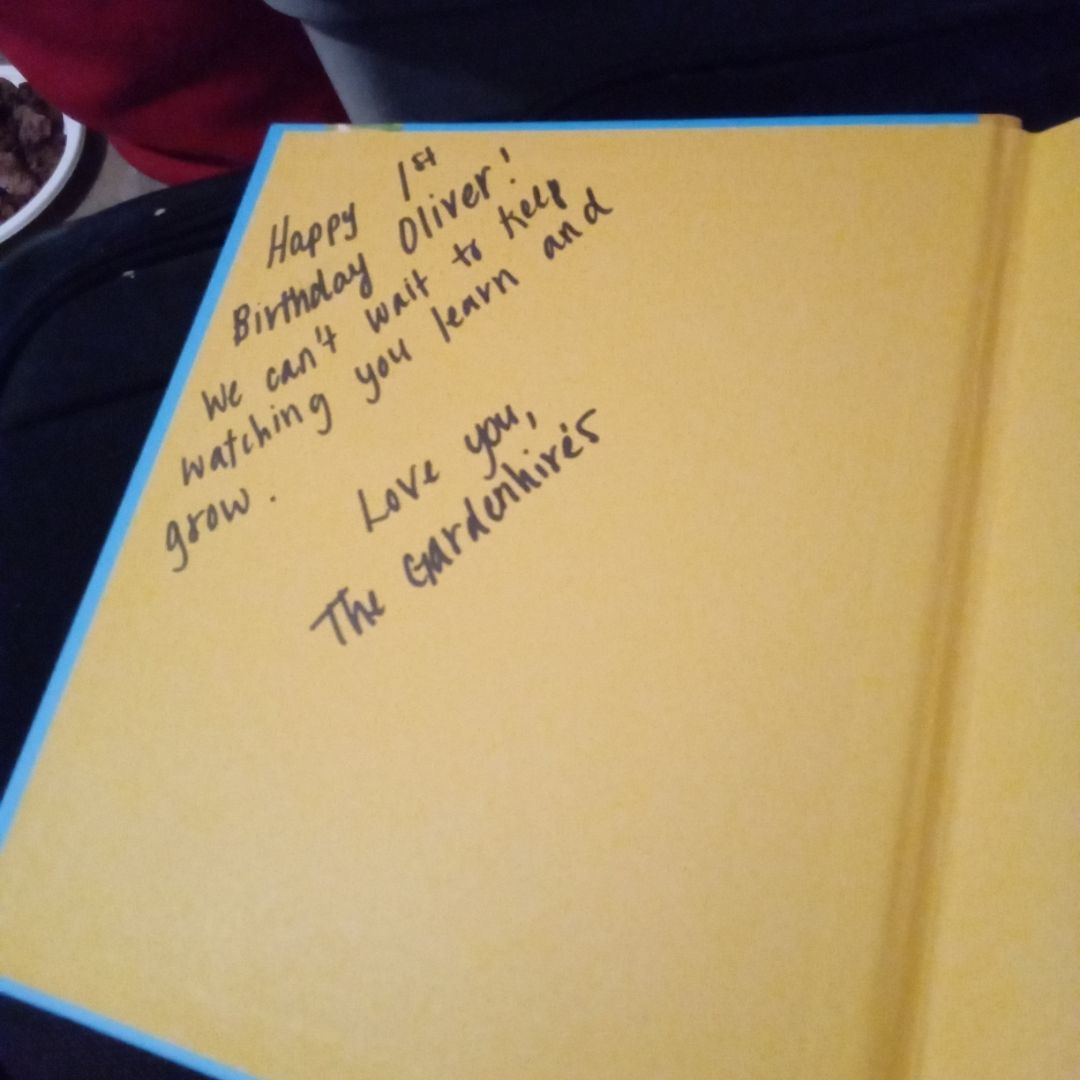 Happy 1st
Birthday Oliver!
We can't wait to keep
watching you learn and
grow.
Love you,
The Gardenhire's